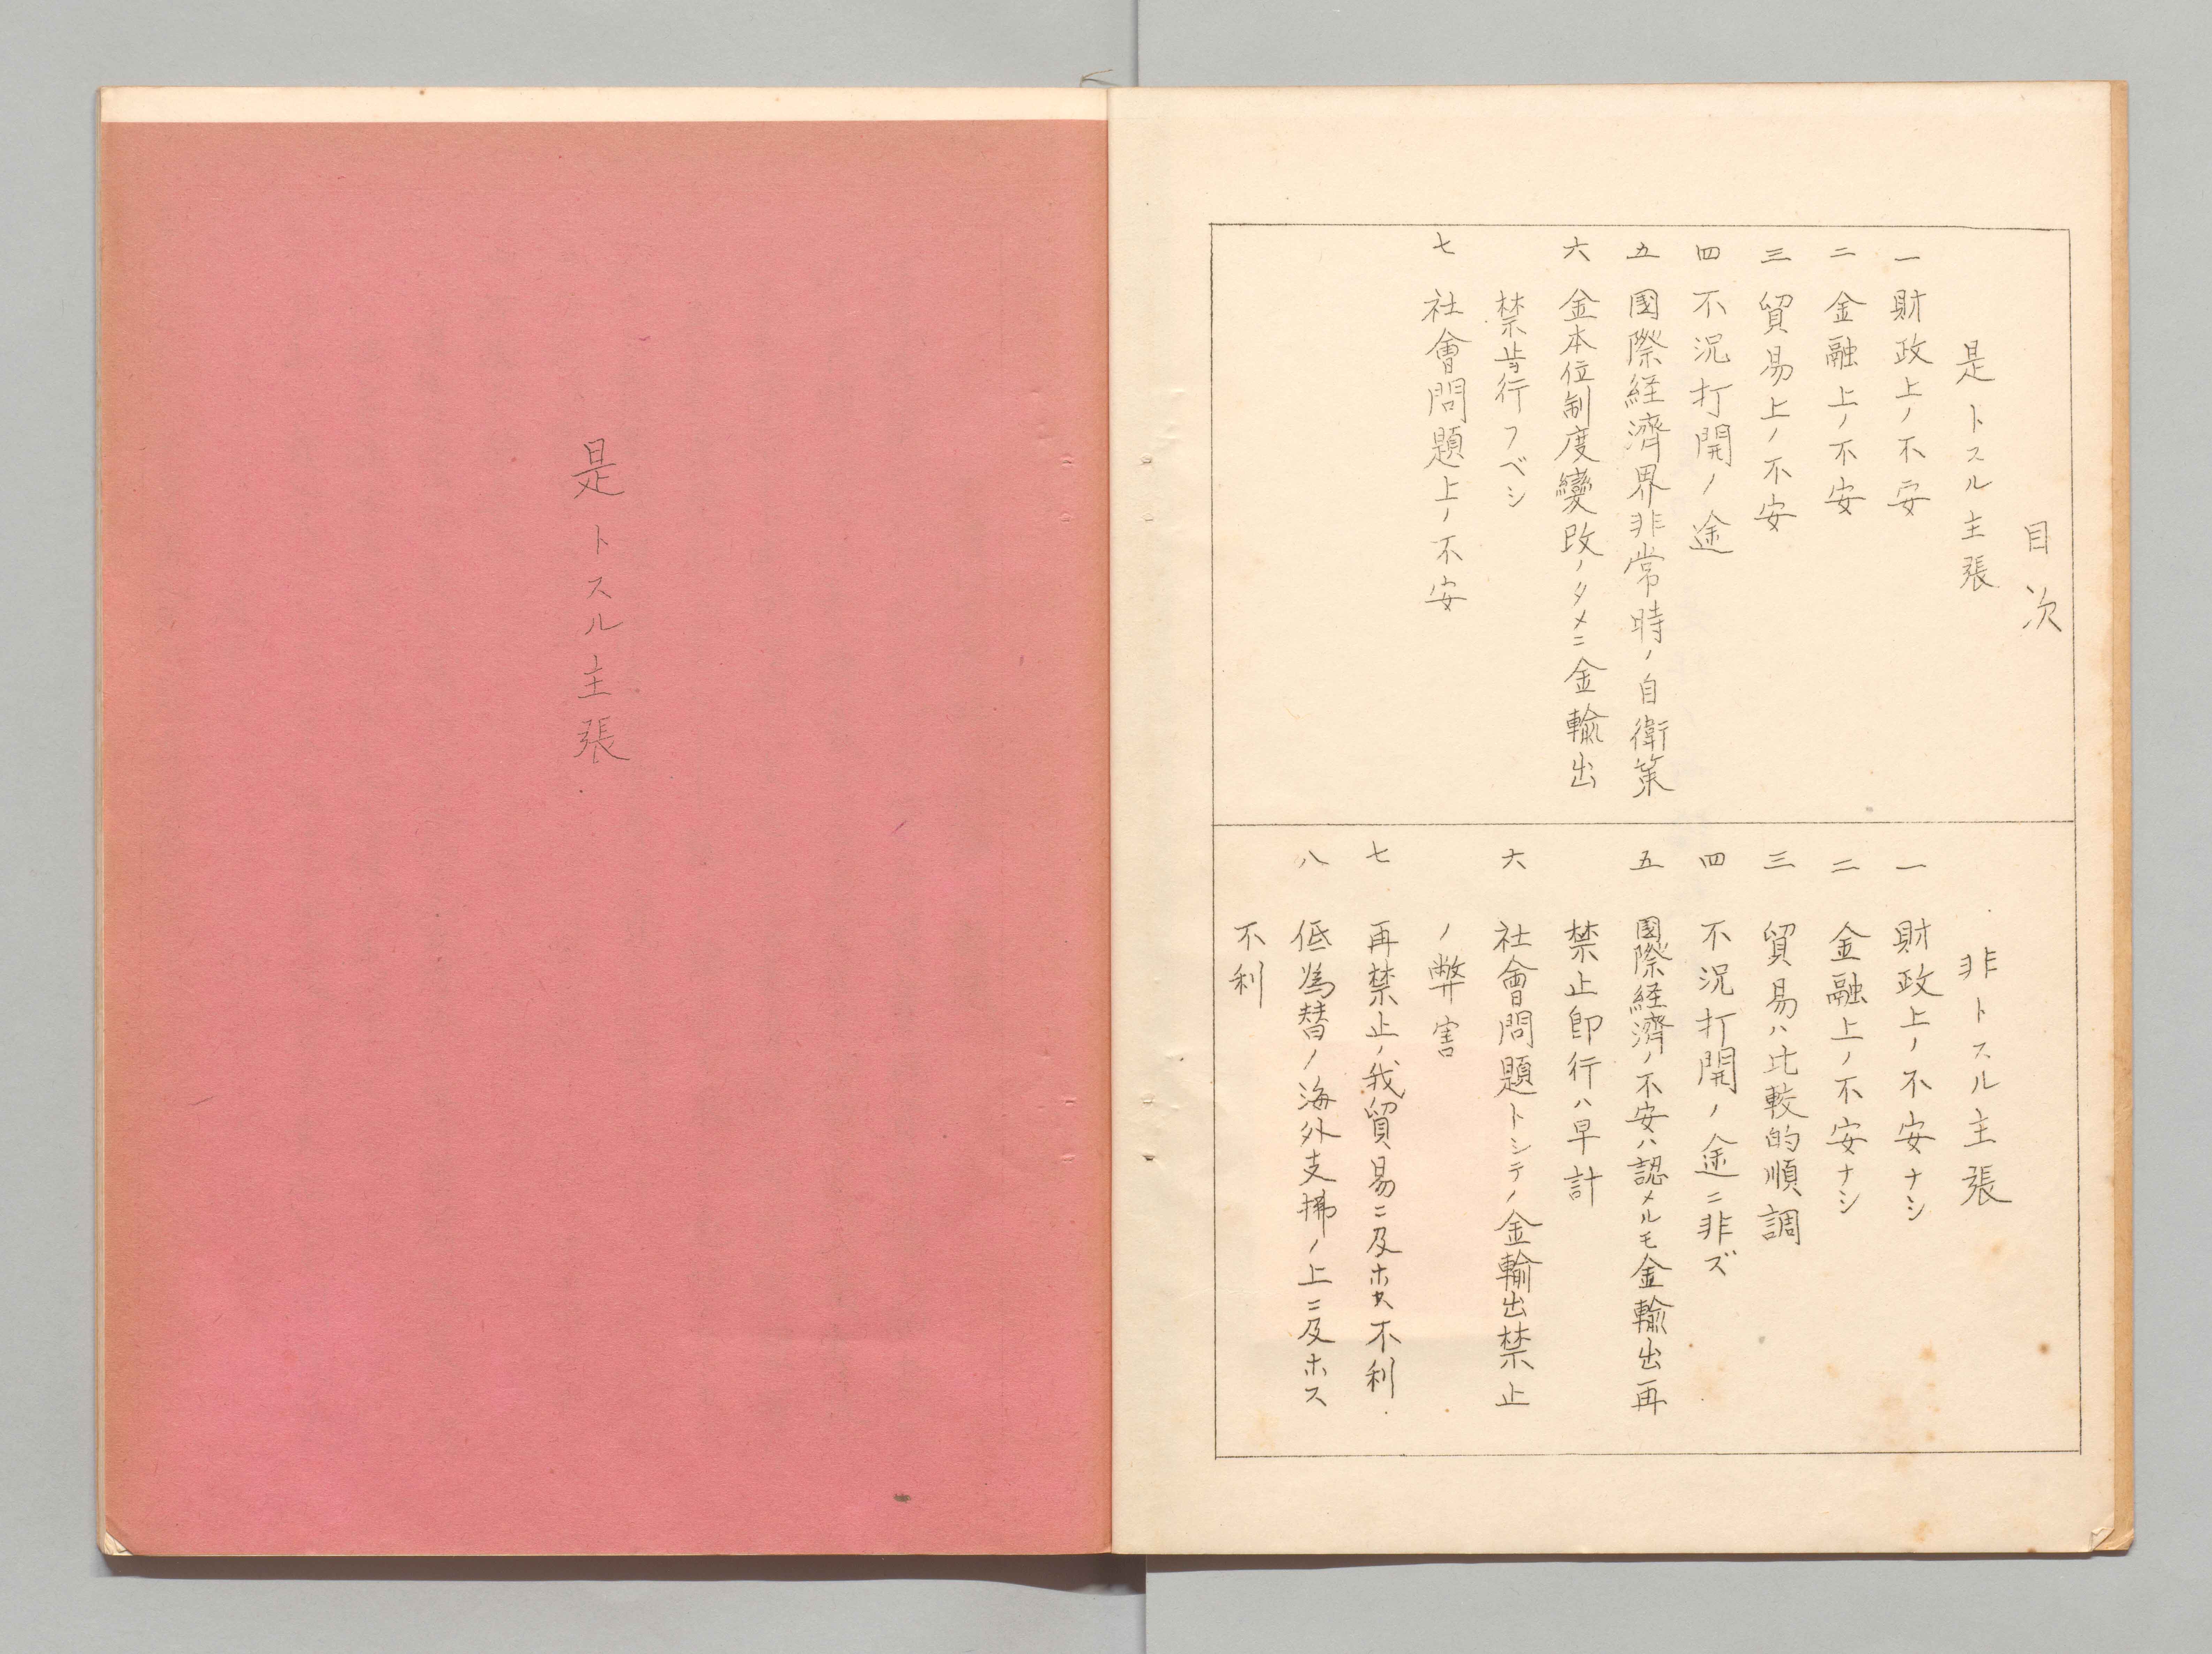 目次
是トスル主張
一 財政上ノ不安
二 金融上ノ不安
三 貿易上ノ不安
四 不況打開ノ途
五 國際経濟界非常時ノ自衛策
六 金本位制度變改ノタメニ金輸出
禁止ヲ行フベシ
七 社會問題上ノ不安
非トスル主張
一 財政上ノ不安ナシ
二 金融上ノ不安ナシ
三 貿易ハ比較的順調
四 不況打開ノ途ニ非ズ
五 國際経濟ノ不安ハ認メルモ金輸出再
禁止即行ハ早計
六 社會問題トシテノ金輸出禁止
ノ弊害
七 再禁止ノ我貿易ニ及ホス不利
八 低為替ノ海外支拂ノ上ニ及ホス
不利
是トスル主張